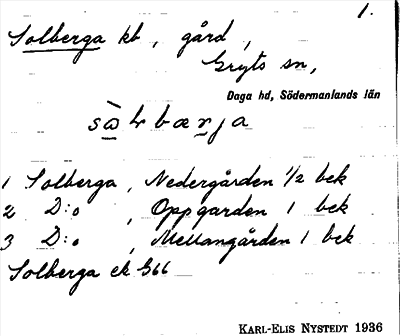 1.
Solberga kb, gård,
Gryts sn,
Daga hd, Södermanlands län
1 Solberga, Nedergården 1/2 bek
2 D:o, Oppgarden 1 bek
3 D:o, Mellangården 1 bek
Solberga ek G66
KARL-ELIS NYSTEDT 1936